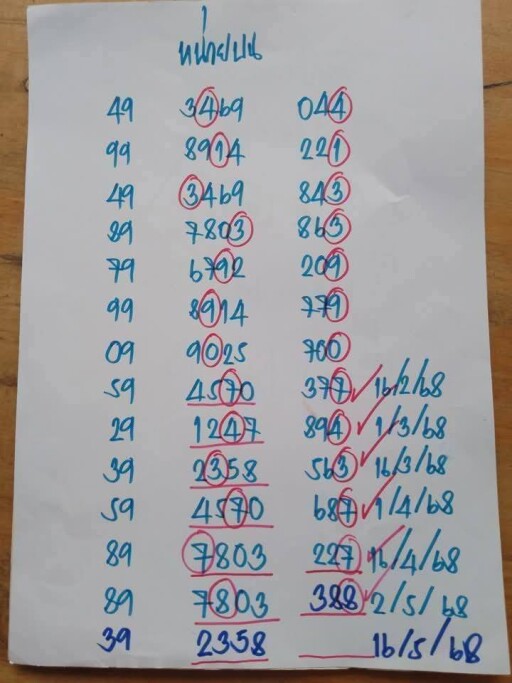 หน่วยบน
49 3469 044
99 8914 221
49 3469 843
89 7803 863
79 6792 209
99 8914 779
09 9025 700
59 4570 377 16/2/68
29 1247 894 1/3/68
39 2358 563 16/3/68
59 4570 687 1/4/68
89 7803 227 16/4/68
89 7803 388 2/5/68
39 2358 16/5/68